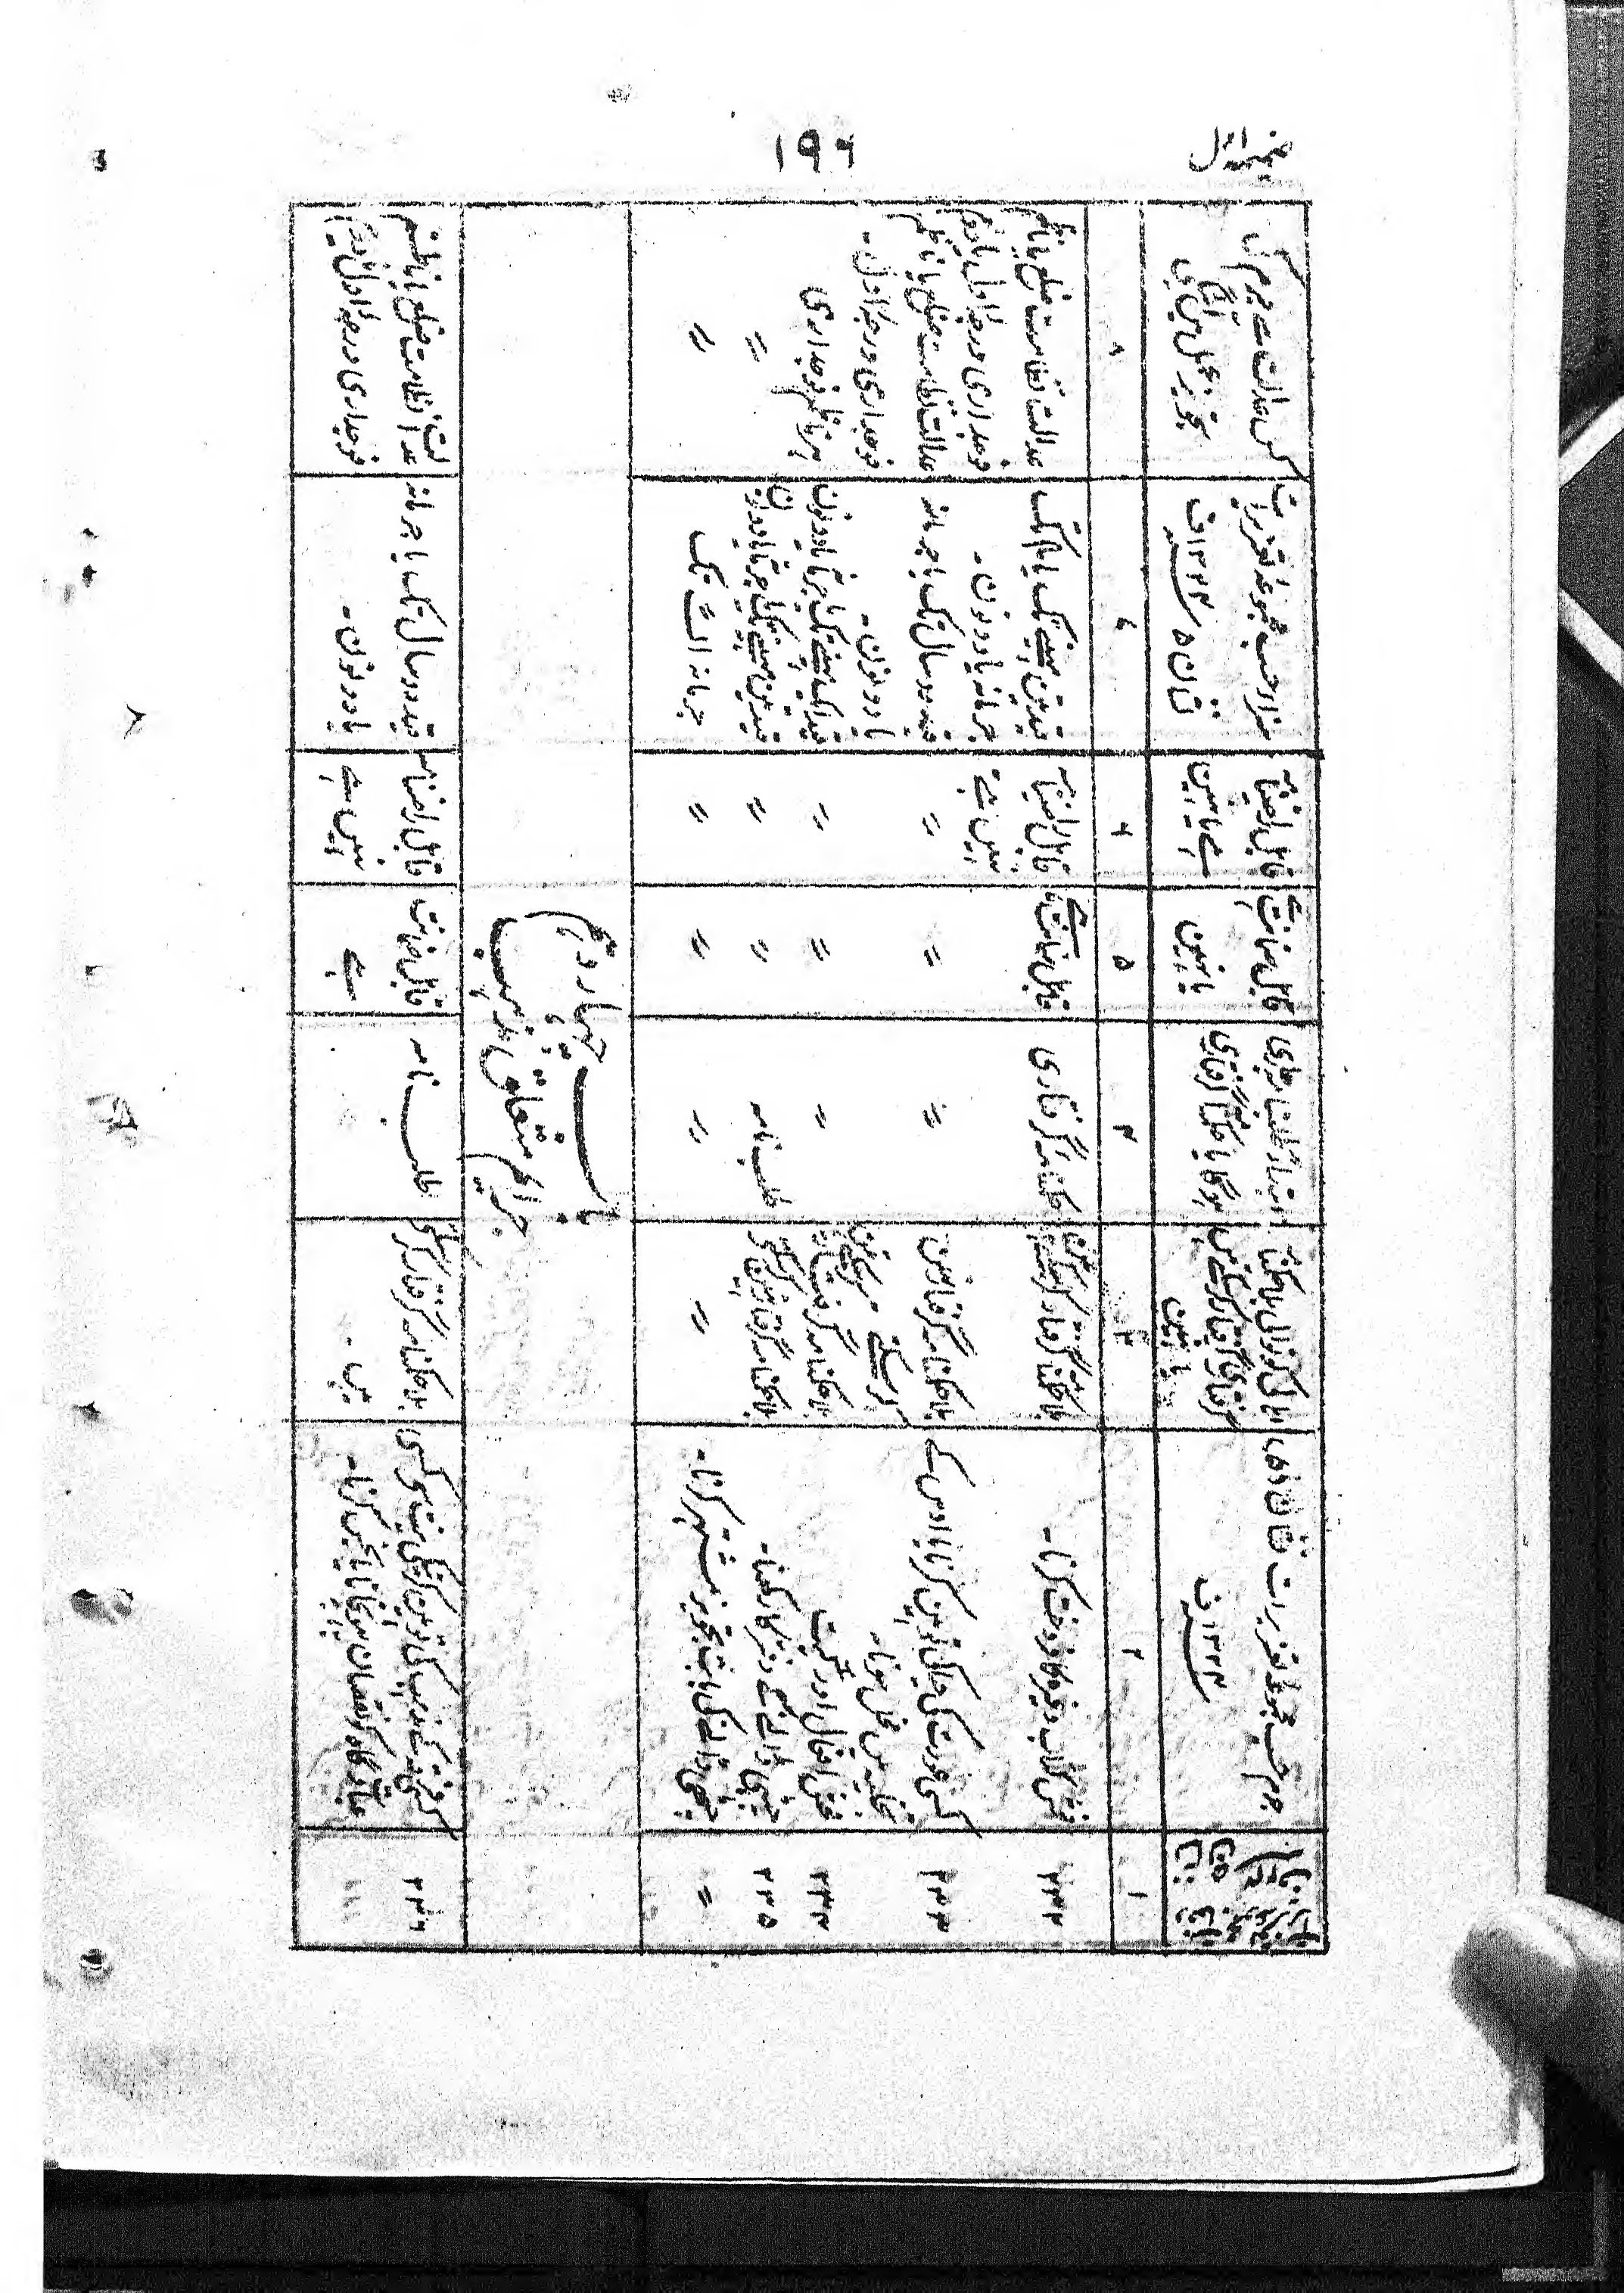 ۱۹۶
ضمیمہ اول
جرم حسب مجموعہ تعزیرات نشان (۵)
۱۳۲۴ ف
آیا کوتوالی بلا حکمنامہ
گرفتاری گرفتار کر سکتی ہے
یا نہین
ابتداءً طلبنامہ جاری
ہوگا یا حکمنامہ گرفتاری
قابل ضمانت ہے
یا نہین
قابل راضینامہ
ہے یا نہین
سزا حسب مجموعہ تعزیرات
نشان ۵ ۱۳۲۴ ف
کس عدالت سے جرم کی
تجویز عمل مین آئیگی
۱
۲
۳
۴
۵
۶
۷
۸
۲۳۲
فحش کتاب وغیرہ کا فروخت کرنا۔
بلا حکمنامہ گرفتار نہین کر سکتی
حکمنامہ گرفتاری
قابل ضمانت ہے
قابل راضینامہ
نہین ہے
قید تین مہینے تک یا
جرمانہ یا دونون۔
عدالت نظامت ضلع یا ناظم
فوجداری درجہ اول یا دوم
۲۳۳
کسی عورت کی حیا کی توہین کرنا یا اوس کے
تخلیہ مین مخل ہونا۔
بلا حکمنامہ گرفتار نہین
کر سکتی
〃
〃
〃
قید دو سال تک یا جرمانہ
یا دونون۔
عدالت نظامت ضلع یا ناظم
فوجداری درجہ اول۔
۲۳۴
فحش افعال اور گیت
بلا حکمنامہ گرفتار کر سکتی
〃
〃
〃
قید ایک مہینے تک یا جرمانہ یا دونون
ہر ناظم فوجداری
۲۳۵
چٹھی ڈالنے کے دفتر کا رکھنا۔
بلا حکمنامہ گرفتار نہین کر سکتی
طلب نامہ
〃
〃
قید تین مہینے تک یا جرمانہ یا دونون
〃
〃
چٹھی ڈالنے کی بابت تجویز مشتہر کرنا۔
〃
〃
〃
〃
جرمانہ تک
〃
باب چہاردہم
جرائم متعلق مذہب
۲۳۶
کسی فرقہ کے مذہب کی توہین کرنیکی نیت سے کسی
عبادت گاہ کو نقصان پہونچانا یا نجس کرنا۔
بلا حکمنامہ گرفتار کر سکتی
ہے۔
طلب نامہ
قابل ضمانت
ہے
قابل راضینامہ
نہین ہے
قید دو سال تک یا جرمانہ
یا دونون۔
عدالت نظامت ضلع یا ناظم
فوجداری درجہ اول یا دوم